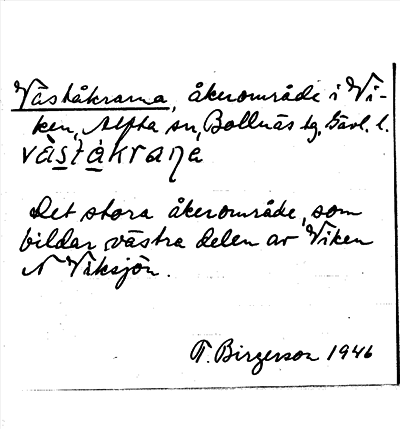 Väståkrarna, åkerområde i Vi-
ken, Alfta sn, Bollnäs tg, Gävl. l.
väståkraŋa
Det stora åkerområde, som
bildar västra delen av Viken
N Viksjön.
T. Birgerson 1946